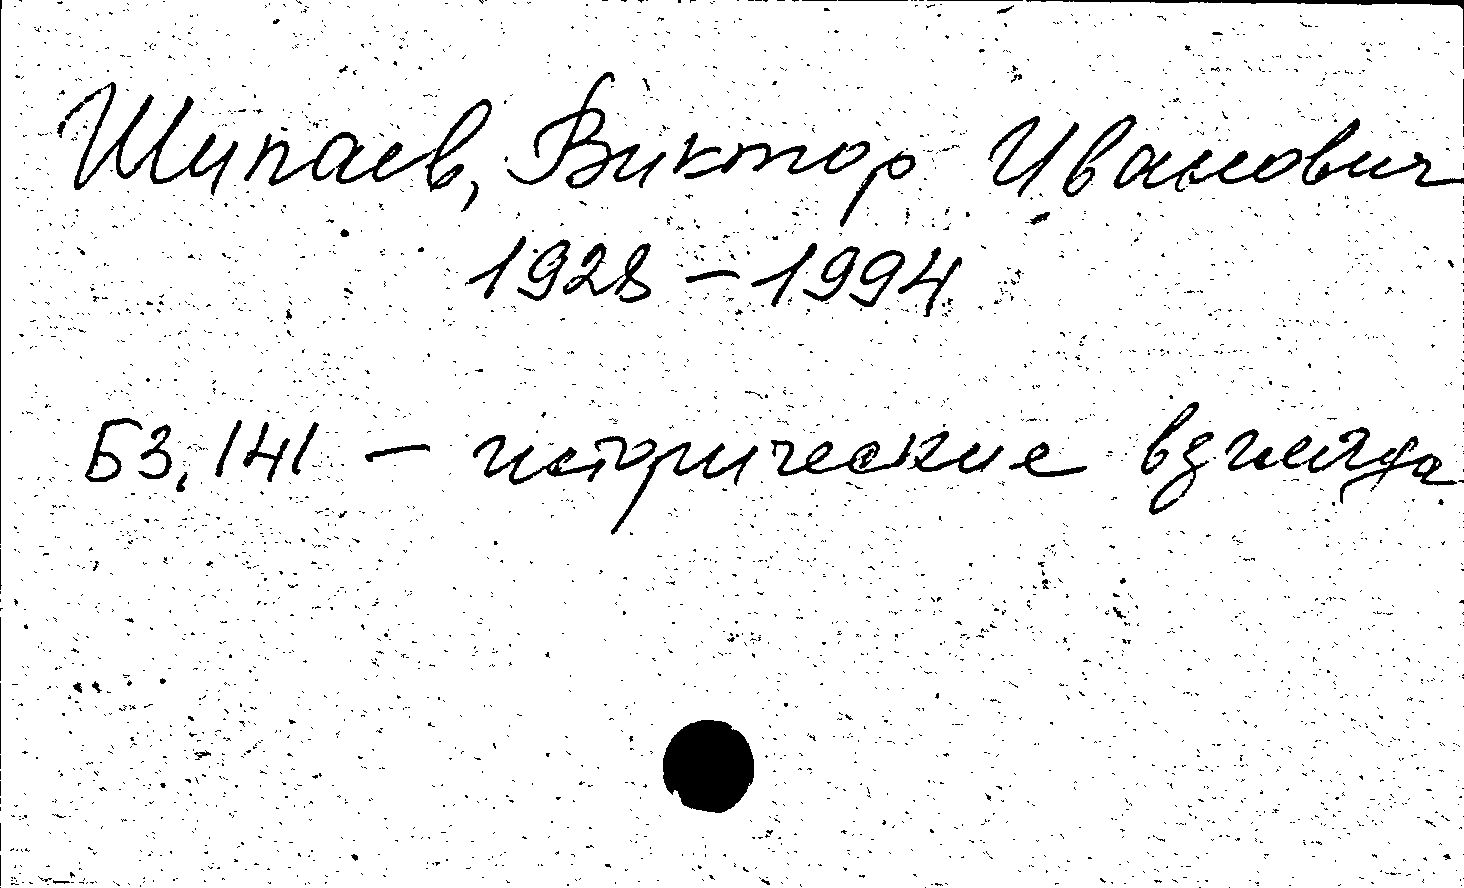 Шипаев, Виктор Иванович
1928 – 1994
Б3,141 – исторические взгляды